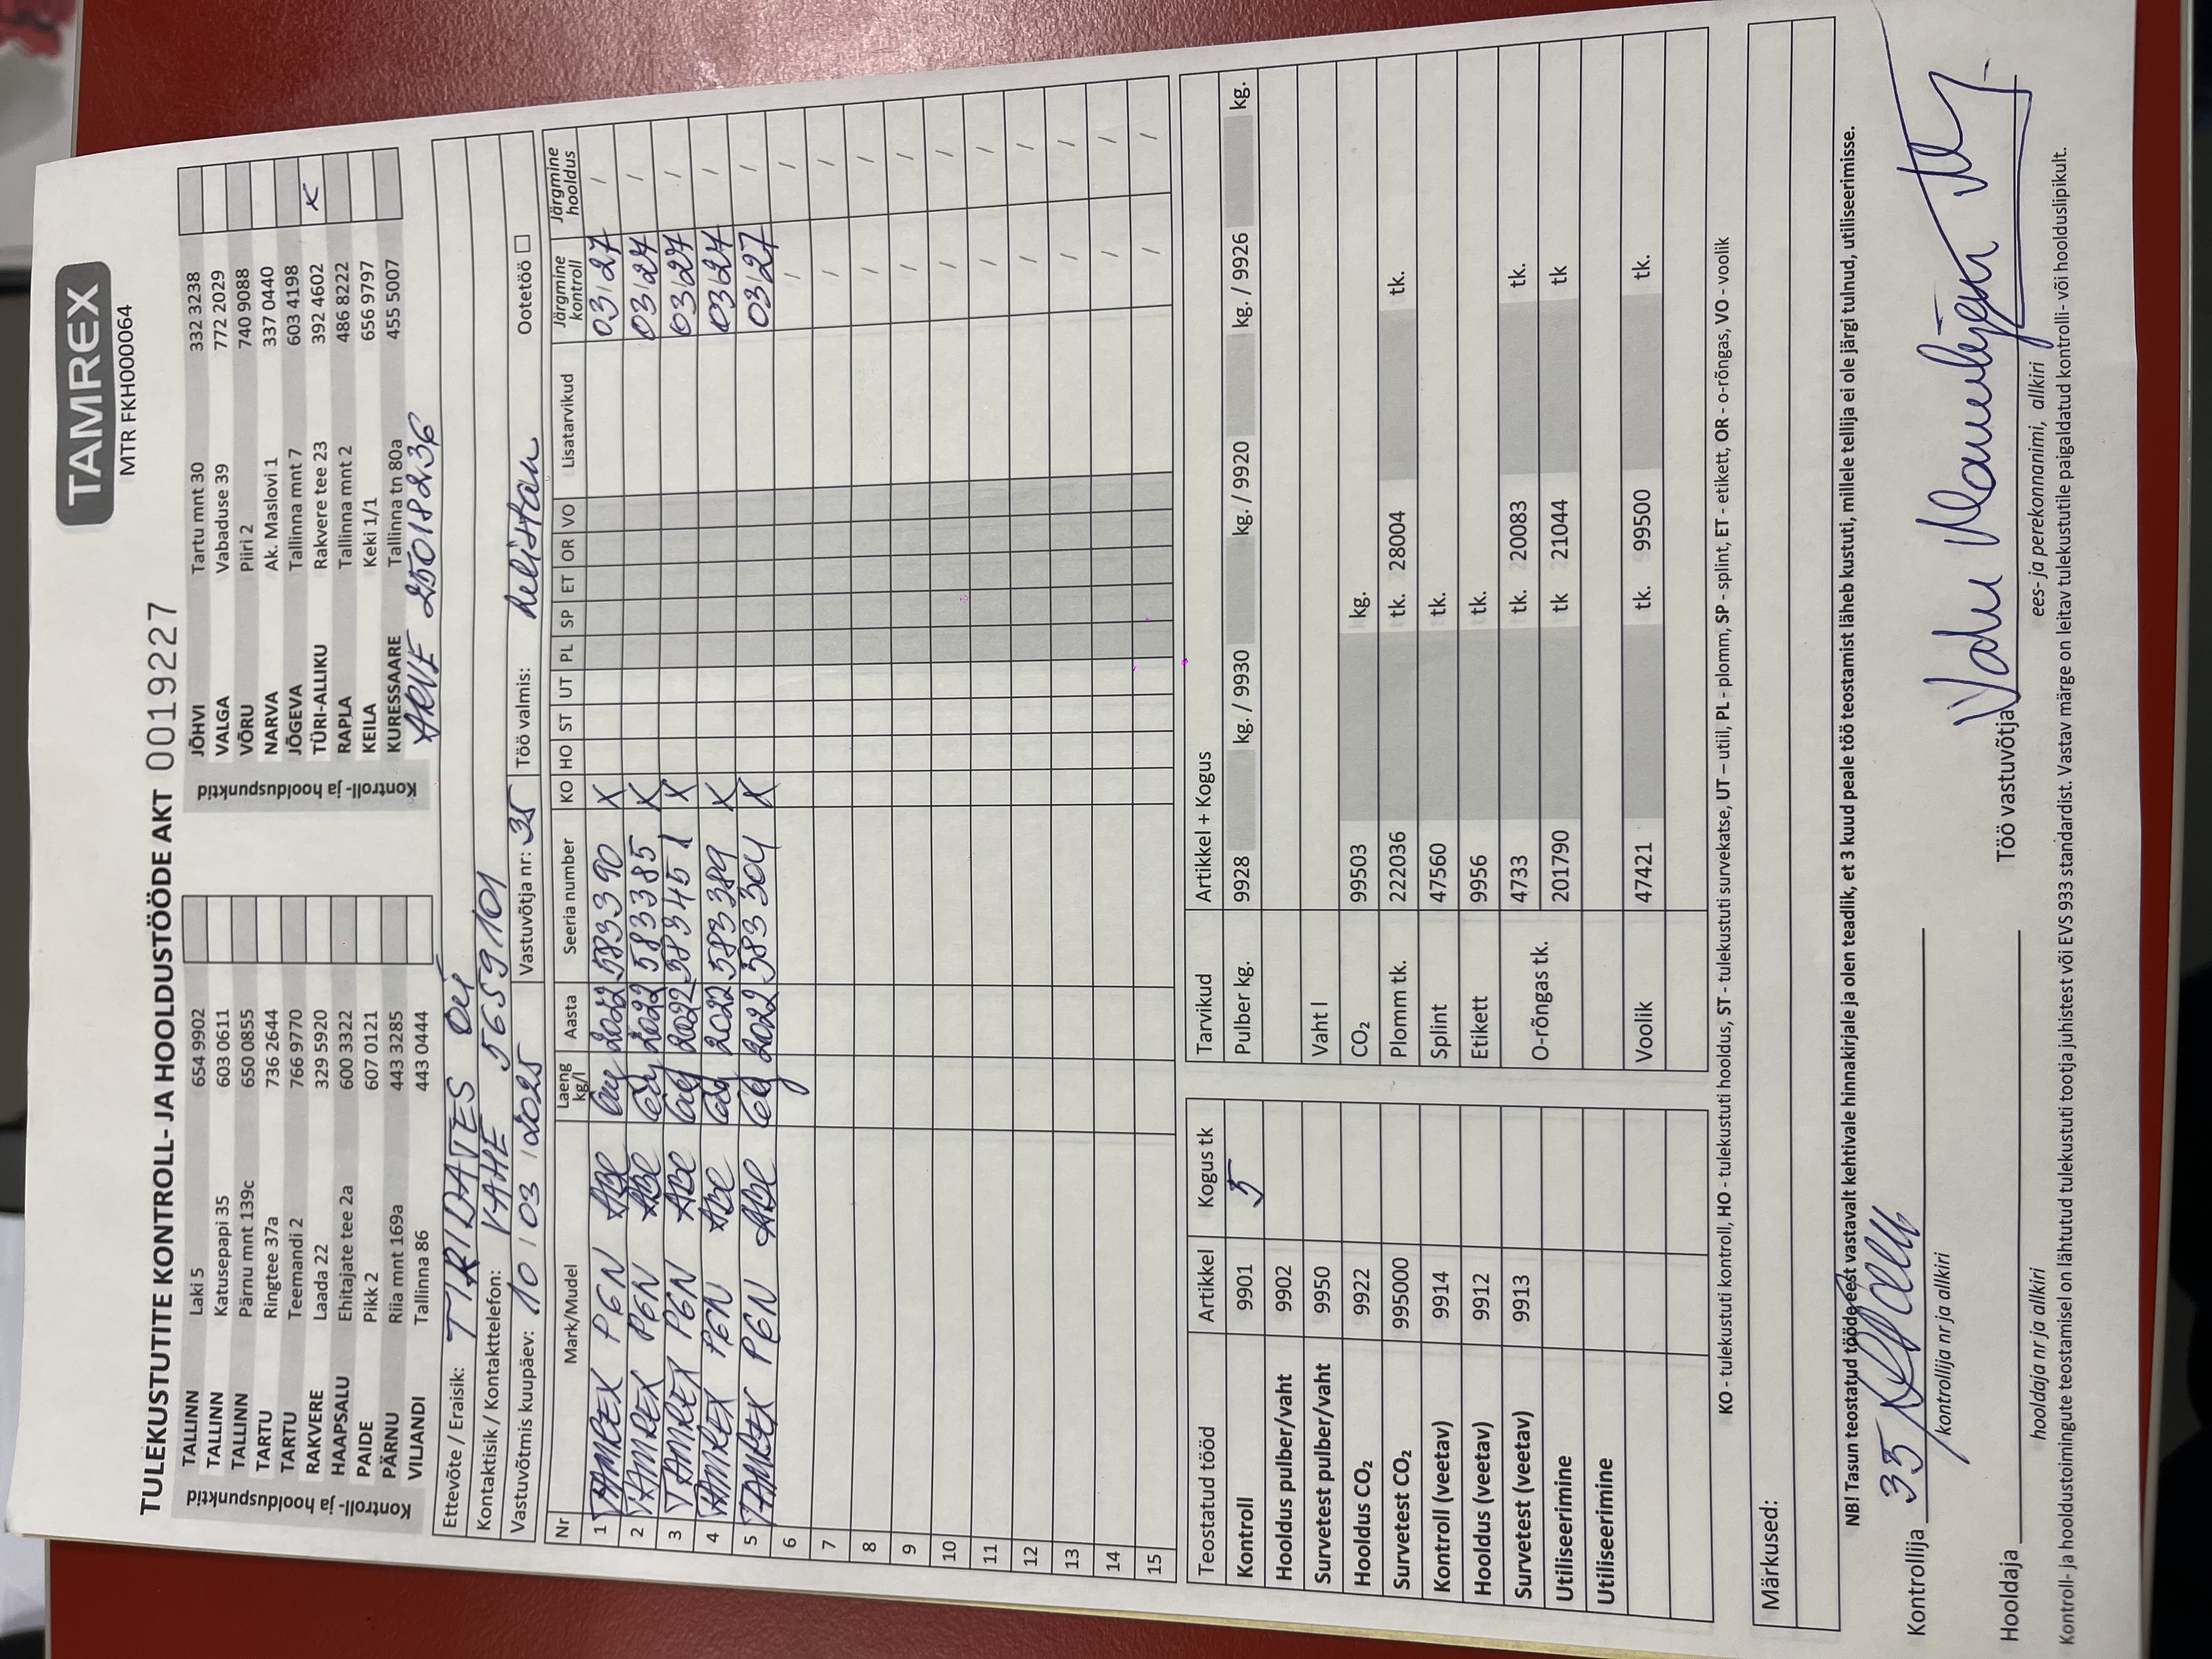 TAMREX
MTR FKH000064
TULEKUSTUTITE KONTROLL- JA HOOLDUSTÖÖDE AKT 0019227
Kontroll- ja hoolduspunktid
TALLINN Laki 5 654 9902
TALLINN Katusepapi 35 603 0611
TALLINN Pärnu mnt 139c 650 0855
TARTU Ringtee 37a 736 2644
TARTU Teemandi 2 766 9770
RAKVERE Laada 22 329 5920
HAAPSALU Ehitajate tee 2a 600 3322
PAIDE Pikk 2 607 0121
PÄRNU Riia mnt 169a 443 3285
VILJANDI Tallinna 86 443 0444
Kontroll- ja hoolduspunktid
JÕHVI Tartu mnt 30 332 3238
VALGA Vabaduse 39 772 2029
VÕRU Piiri 2 740 9088
NARVA Ak. Maslovi 1 337 0440
JÕGEVA Tallinna mnt 7 603 4198
TÜRI-ALLIKU Rakvere tee 23 392 4602 X
RAPLA Tallinna mnt 2 486 8222
KEILA Keki 1/1 656 9797
KURESSAARE Tallinna tn 80a 455 5007
ARVE 25018236
Ettevõte / Eraisik: TIRIDATES OÜ
Kontaktisik / Kontakttelefon: VAHE 56559101
Vastuvõtmis kuupäev: 10 / 03 / 2025 Vastuvõtja nr: 35 Töö valmis: Helistan Ootetöö
Nr Mark/Mudel Laeng kg/l Aasta Seeria number KO HO ST UT PL SP ET OR VO Lisatarvikud Järgmine kontroll Järgmine hooldus
1 TAMREX PGN ABC 6kg 2022 583390 X 03/27 /
2 TAMREX PGN ABC 6kg 2022 583385 X 03/27 /
3 TAMREX PGN ABC 6kg 2022 583451 X 03/27 /
4 TAMREX PGN ABC 6kg 2022 583389 X 03/27 /
5 TAMREX PGN ABC 6kg 2022 583304 X 03/27 /
6 / /
7 / /
8 / /
9 / /
10 / /
11 / /
12 / /
13 / /
14 / /
15 / /
Teostatud tööd Artikkel Kogus tk
Kontroll 9901 5
Hooldus pulber/vaht 9902
Survetest pulber/vaht 9950
Hooldus CO₂ 9922
Survetest CO₂ 995000
Kontroll (veetav) 9914
Hooldus (veetav) 9912
Survetest (veetav) 9913
Utiliseerimine
Utiliseerimine
Tarvikud Artikkel + Kogus
Pulber kg. 9928 kg. / 9930 kg. / 9920 kg. / 9926 kg.
Vaht l
CO₂ 99503 kg.
Plomm tk. 222036 tk. 28004 tk.
Splint 47560 tk.
Etikett 9956 tk.
O-rõngas tk. 4733 tk. 20083 tk.
201790 tk 21044 tk
Voolik 47421 tk. 99500 tk.
KO - tulekustuti kontroll, HO - tulekustuti hooldus, ST - tulekustuti survekatse, UT – utiil, PL - plomm, SP - splint, ET - etikett, OR - o-rõngas, VO - voolik
Märkused:
NB! Tasun teostatud tööde eest vastavalt kehtivale hinnakirjale ja olen teadlik, et 3 kuud peale töö teostamist läheb kustuti, millele tellija ei ole järgi tulnud, utiliseerimisse.
Kontrollija 35
kontrollija nr ja allkiri
Hooldaja
hooldaja nr ja allkiri
Töö vastuvõtja
ees- ja perekonnanimi, allkiri
Kontroll- ja hooldustoimingute teostamisel on lähtutud tulekustuti tootja juhistest või EVS 933 standardist. Vastav märge on leitav tulekustutile paigaldatud kontrolli- või hoolduslipikult.